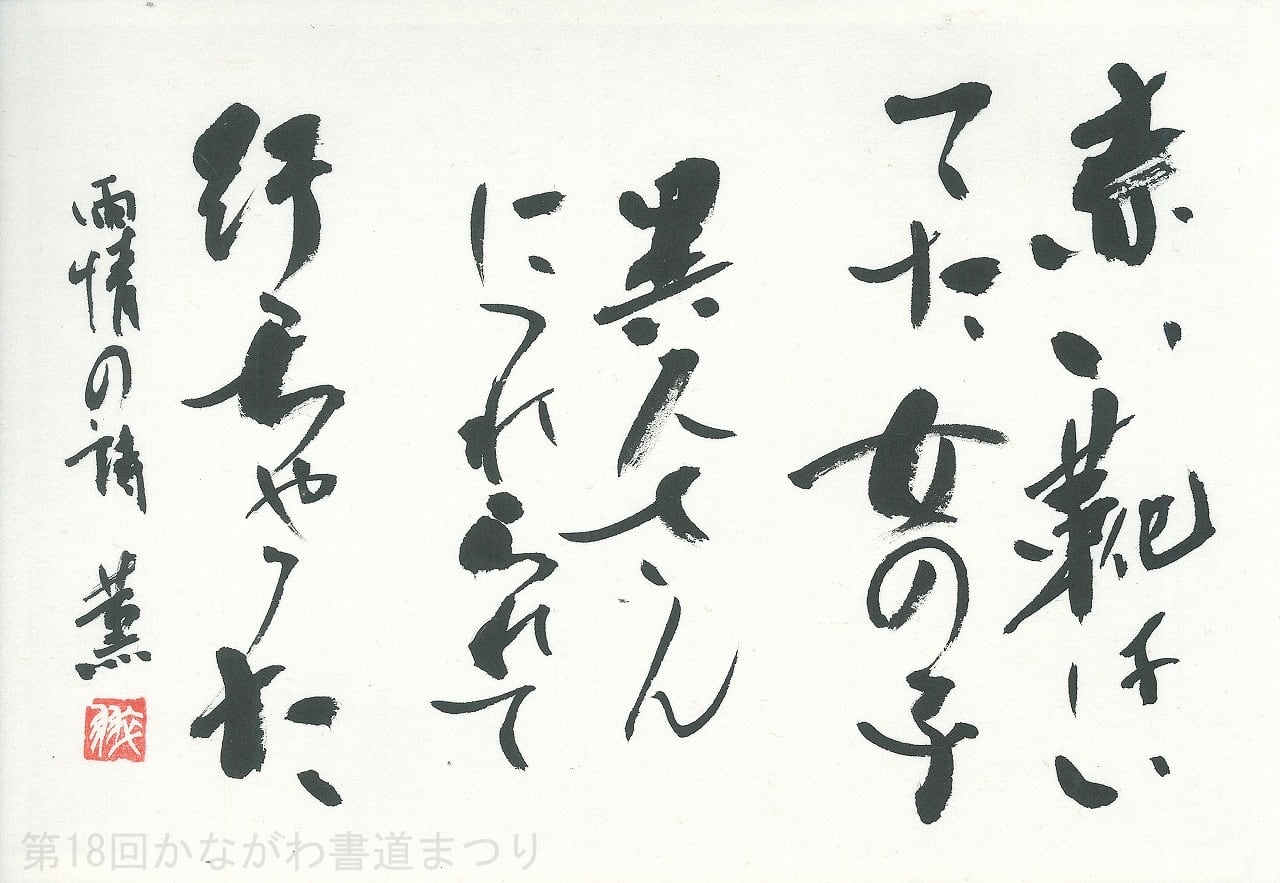 赤い靴はい
てた女の子
異人さん
につれられて
行つちやつた
雨情の詩 薫
第18回かながわ書道まつり